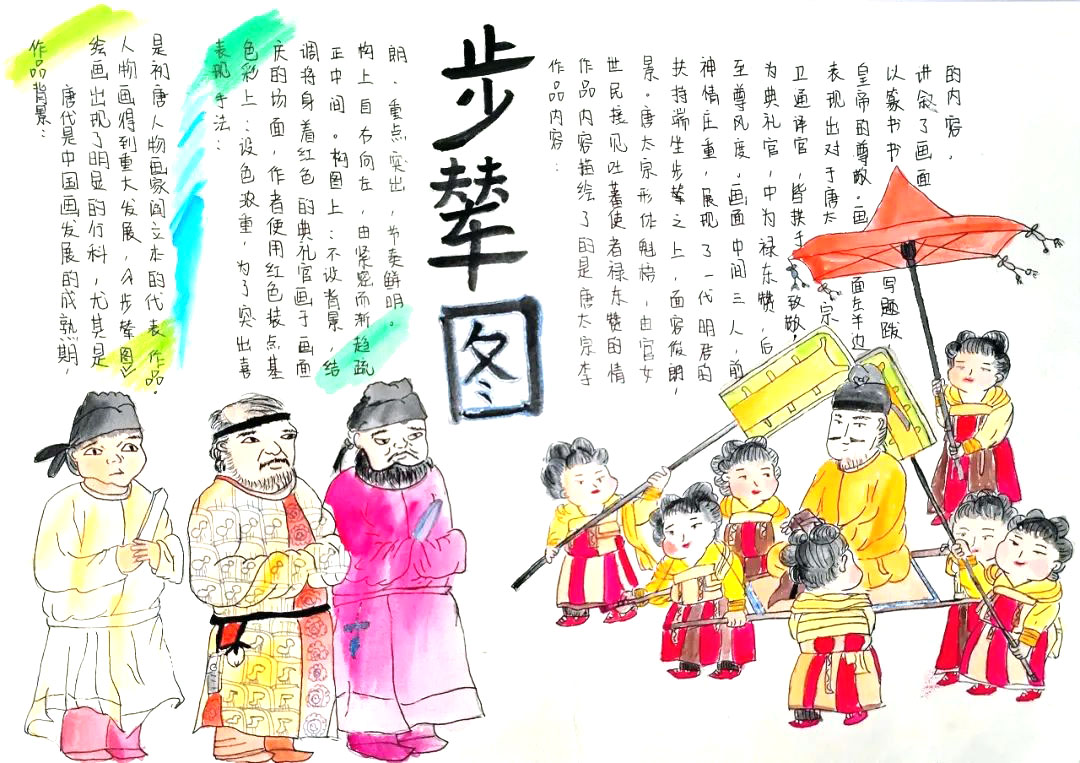 步辇图
作品背景：
唐代是中国画发展的成熟期，
绘画出现了明显的分科，尤其是
人物画得到重大发展，《步辇图》
是初唐人物画家阎立本的代表作品。
表现手法：
色彩上：设色浓重，为了突出喜
庆的场面，作者使用红色装点基
调将身着红色的典礼官画于画面
正中间。构图上：不设背景，结
构上自右向左，由紧密而渐趋疏
朗，重点突出，节奏鲜明。
作品内容：
作品内容描绘了的是唐太宗李
世民接见吐蕃使者禄东赞的情
景。唐太宗形体魁梧，由宫女
扶持端坐步辇之上，面容俊朗，
神情庄重，展现了一代明君的
至尊风度。画面中间三人，前
为典礼官，中为禄东赞，后
卫通译官，皆扶手致敬，
表现出对于唐太宗
皇帝的尊敬。画面左半边
以篆书书写题跋
讲叙了画面
的内容。